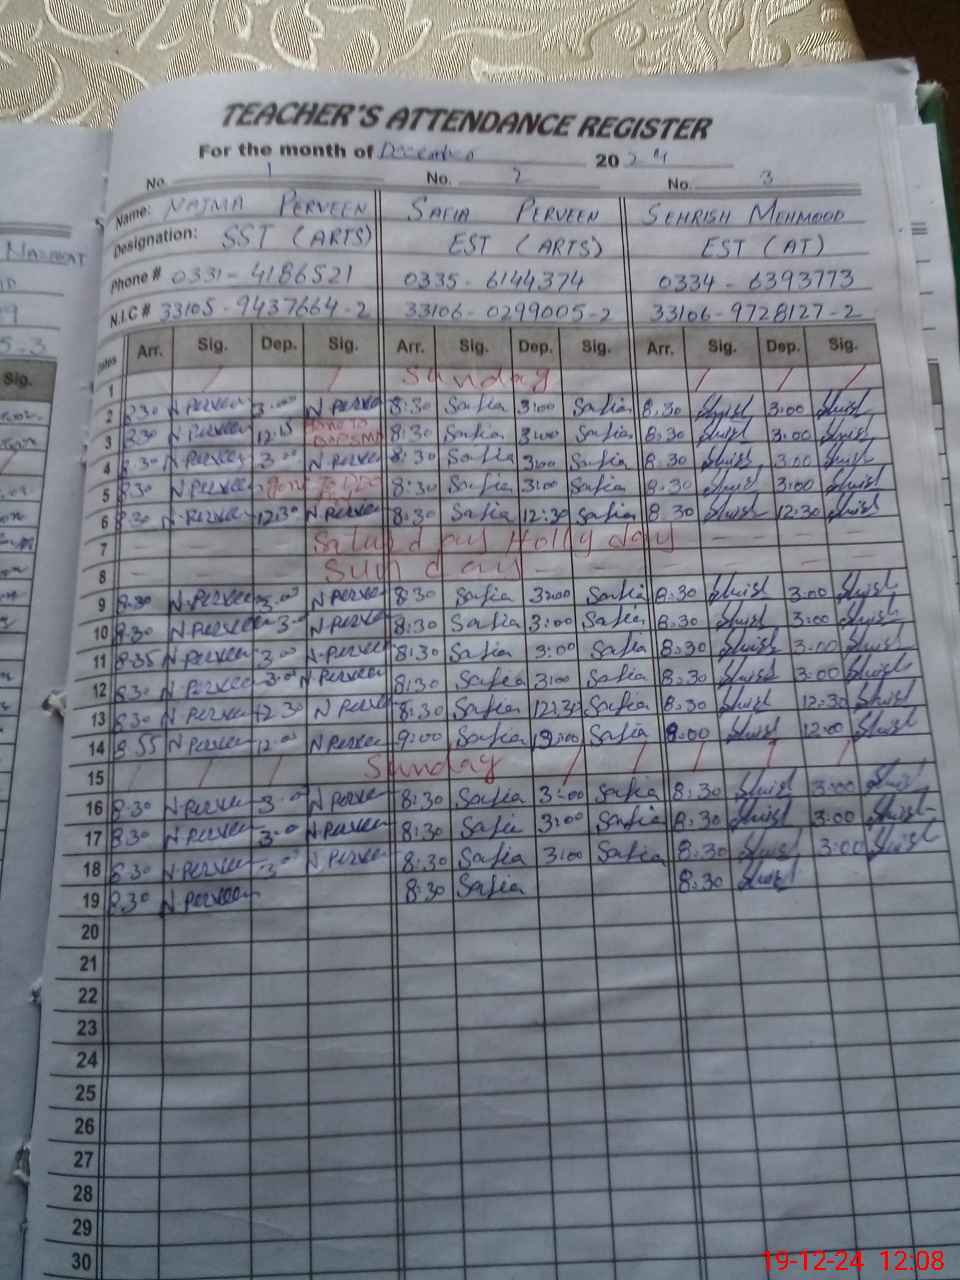 TEACHER'S ATTENDANCE REGISTER
For the month of December 2024
No. 1 No. 2 No. 3
Name: NAJMA PERVEEN SAFIA PERVEEN SEHRISH MEHMOOD
Designation: SST (ARTS) EST (ARTS) EST (AT)
Phone # 0331-4186521 0335-6144374 0334-6393773
N.I.C # 33105-9437664-2 33106-0299005-2 33106-9728127-2
Dates Arr. Sig. Dep. Sig. Arr. Sig. Dep. Sig. Arr. Sig. Dep. Sig.
1 Sunday
2 8:30 N Perveen 3:00 N Perveen 8:30 Safia 3:00 Safia 8:30 3:00
3 8:30 N Perveen 12:15 8:30 Safia 3:00 Safia 8:30 3:00
4 8:30 N Perveen 3:00 N Perveen 8:30 Safia 3:00 Safia 8:30 3:00
5 8:30 N Perveen 8:30 Safia 3:00 Safia 8:30 3:00
6 8:30 N Perveen 12:30 N Perveen 8:30 Safia 12:30 Safia 8:30 12:30
7 Saturday Holly day
8 Sunday
9 8:30 N Perveen 3:00 N Perveen 8:30 Safia 3:00 Safia 8:30 3:00
10 8:30 N Perveen 3:00 N Perveen 8:30 Safia 3:00 Safia 8:30 3:00
11 8:35 N Perveen 3:00 N Perveen 8:30 Safia 3:00 Safia 8:30 3:00
12 8:30 N Perveen 3:00 N Perveen 8:30 Safia 3:00 Safia 8:30 3:00
13 8:30 N Perveen 12:30 N Perveen 8:30 Safia 12:30 Safia 8:30 12:30
14 8:55 N Perveen 12:00 N Perveen 9:00 Safia Safia 9:00 12:00
15 Sunday
16 8:30 N Perveen 3:00 N Perveen 8:30 Safia 3:00 Safia 8:30 3:00
17 8:30 N Perveen 3:00 N Perveen 8:30 Safia 3:00 Safia 8:30 3:00
18 8:30 N Perveen 3:00 N Perveen 8:30 Safia 3:00 Safia 8:30 3:00
19 8:30 N Perveen 8:30 Safia 8:30
20
21
22
23
24
25
26
27
28
29
30
19-12-24 12:08